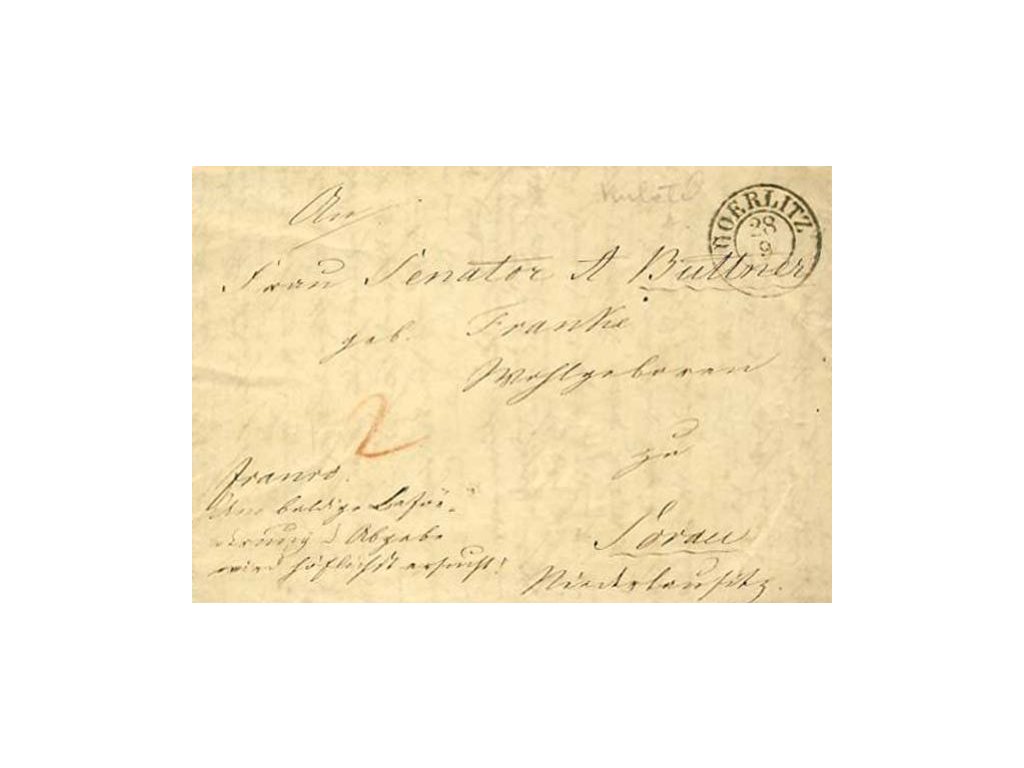 An
GOERLITZ
28
9
Frau Senator A Büttner
geb. Franke
Wohlgeboren
2
zu
franco.
Um baldige Beför-
derung & Abgabe
wird höflichst ersucht!
Sorau
Niederlausitz.